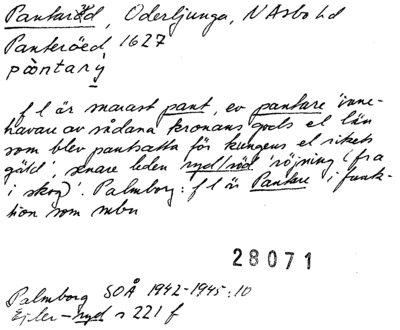 Pantaröd, Oderljunga, N Åsbo hd
Panteröed 1627
pàntarý
f l är snarast pant, ev pantare 'inne-
havare av sådana kronans gods el län
som blev pantsatta för kungens el rikets
gäld', senare leden ryd/röd 'röjning (fra
i skog)'. Palmborg: f l är Pantare i funk-
tion som mbn
28071
Palmborg SOÅ 1942-1945:10
Ejler-ryd s 221 f